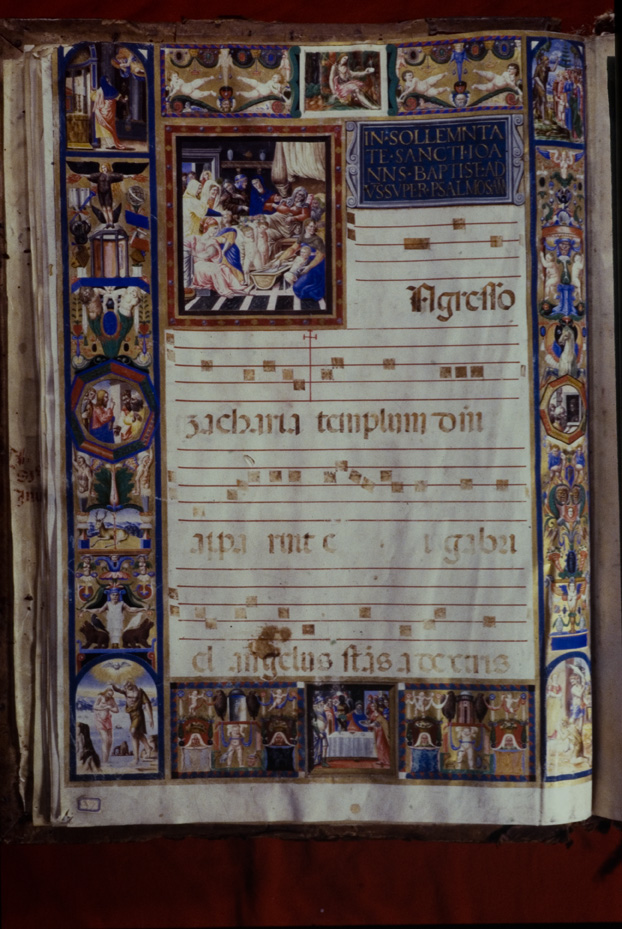 IN·SOLLEMNTA
TE·SANCTI·IOA
NNS·BAPTIST·AD
VSSVPER·PSALMOSAN
Agresso
zacharia templum dm
appa ruit e i gabri
el angelus stās a dextris